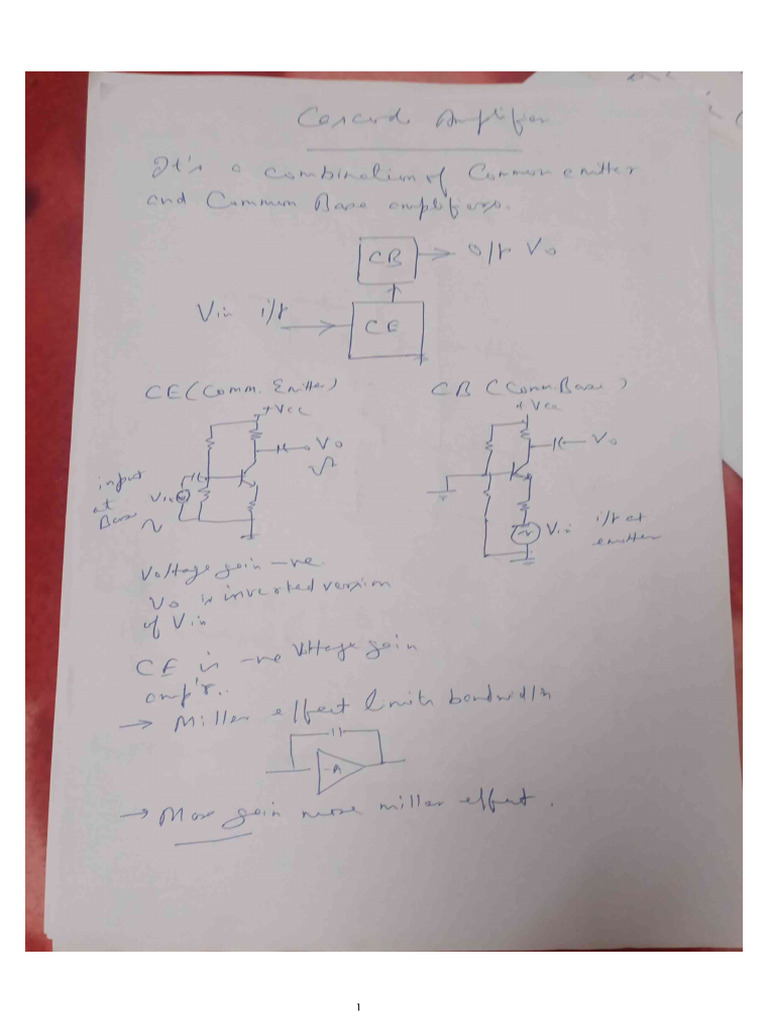 Cascode Amplifier
It's a combination of Common emitter
and Common Base amplifiers.
CB → o/p Vo
Vin i/p → CE
CE (Comm. Emitter)
CB (Comm. Base)
+Vcc
+Vcc
Vo
Vo
input
at
Base
Vin
Vin
i/p at
emitter
Voltage gain -ve
Vo is inverted version
of Vin
CE is -ve Voltage gain
amp'r..
→ Miller effect limits bandwidth
-A
→ More gain more miller effect.
1